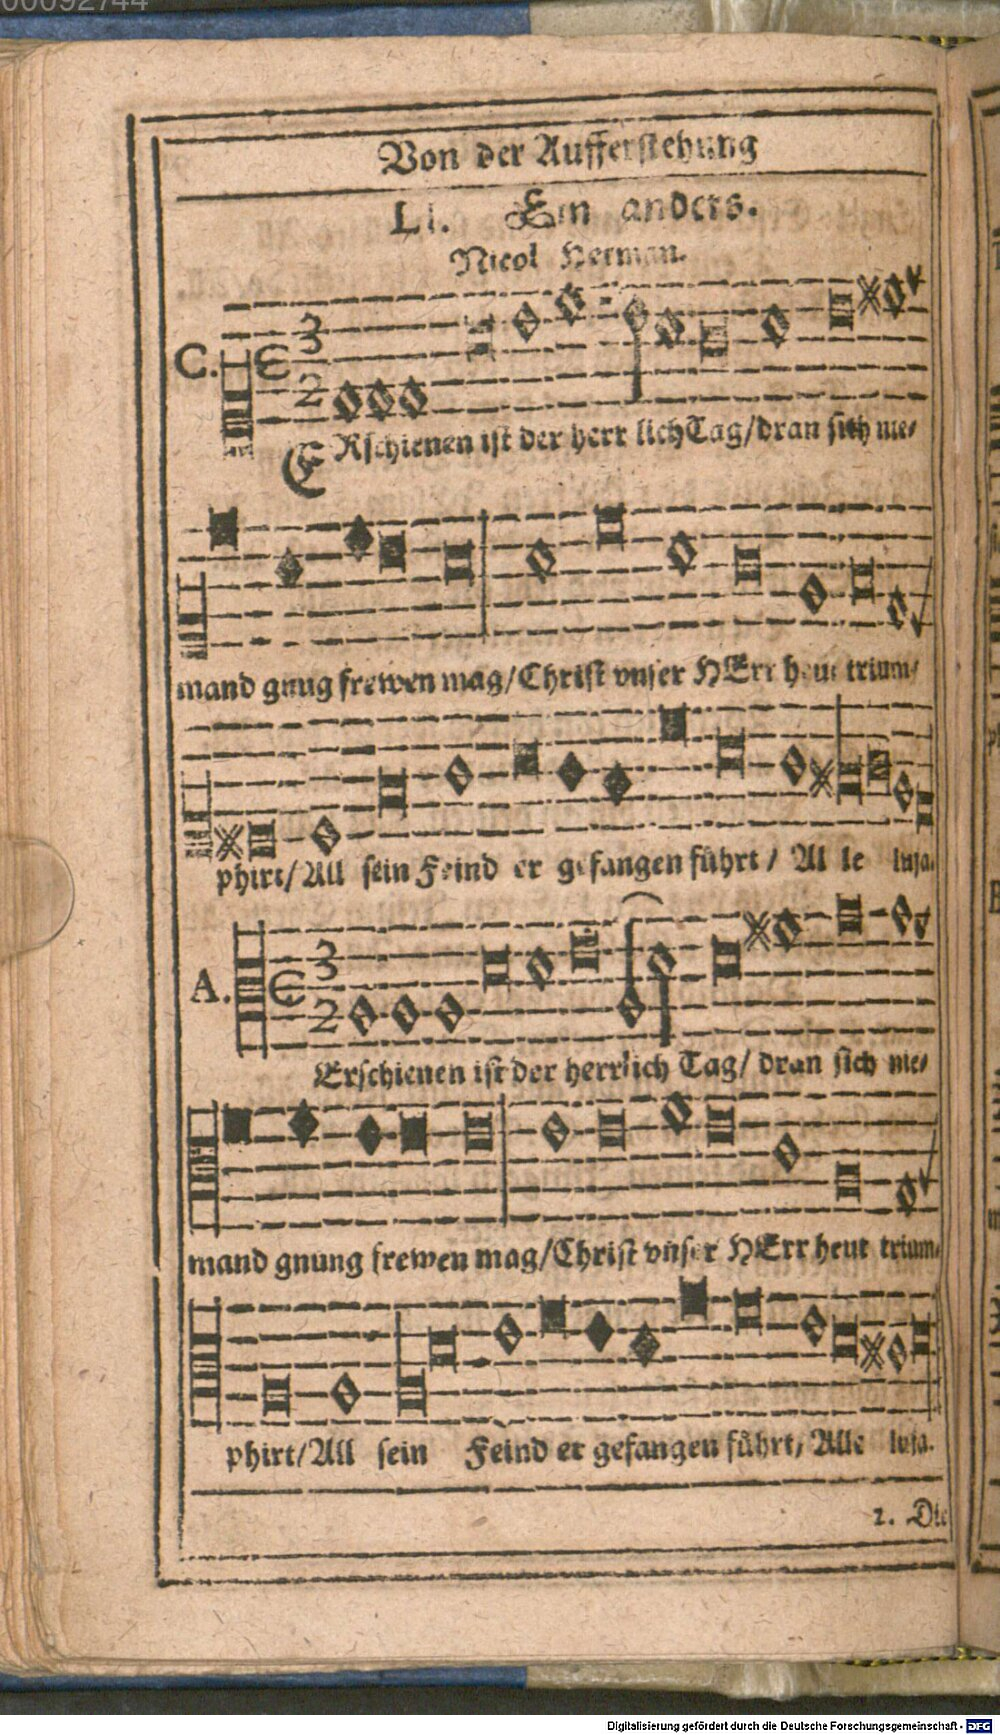 00092744
Von der Aufferstehung
LI. Ein anders.
Nicol Herman.
C.
3
2
ERschienen ist der herr lich Tag/dran sich nie-
mand gnug frewen mag/Christ vnser HErr heut trium-
phirt/All sein Feind er gefangen führt/ Al le luja.
A.
3
2
Erschienen ist der herrlich Tag/ dran sich nie-
mand gnung frewen mag/Christ vnser HErr heut trium-
phirt/All sein Feind er gefangen führt/ Alle luja.
2. Die
Digitalisierung gefördert durch die Deutsche Forschungsgemeinschaft - DFG